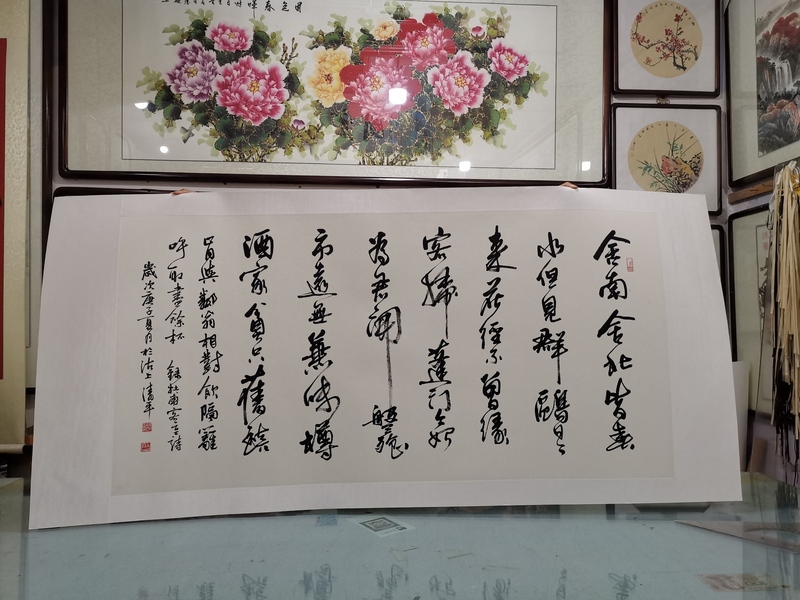 国色春暉
舍南舍北皆春
水但見群鷗日〻
來花徑不曾緣
客掃蓬門今始
為君開盤飧
市遠無兼味樽
酒家貧只舊醅
肯與鄰翁相對飲隔籬
呼取盡餘杯 錄杜甫客至詩
歲次庚子夏月於沽上清平